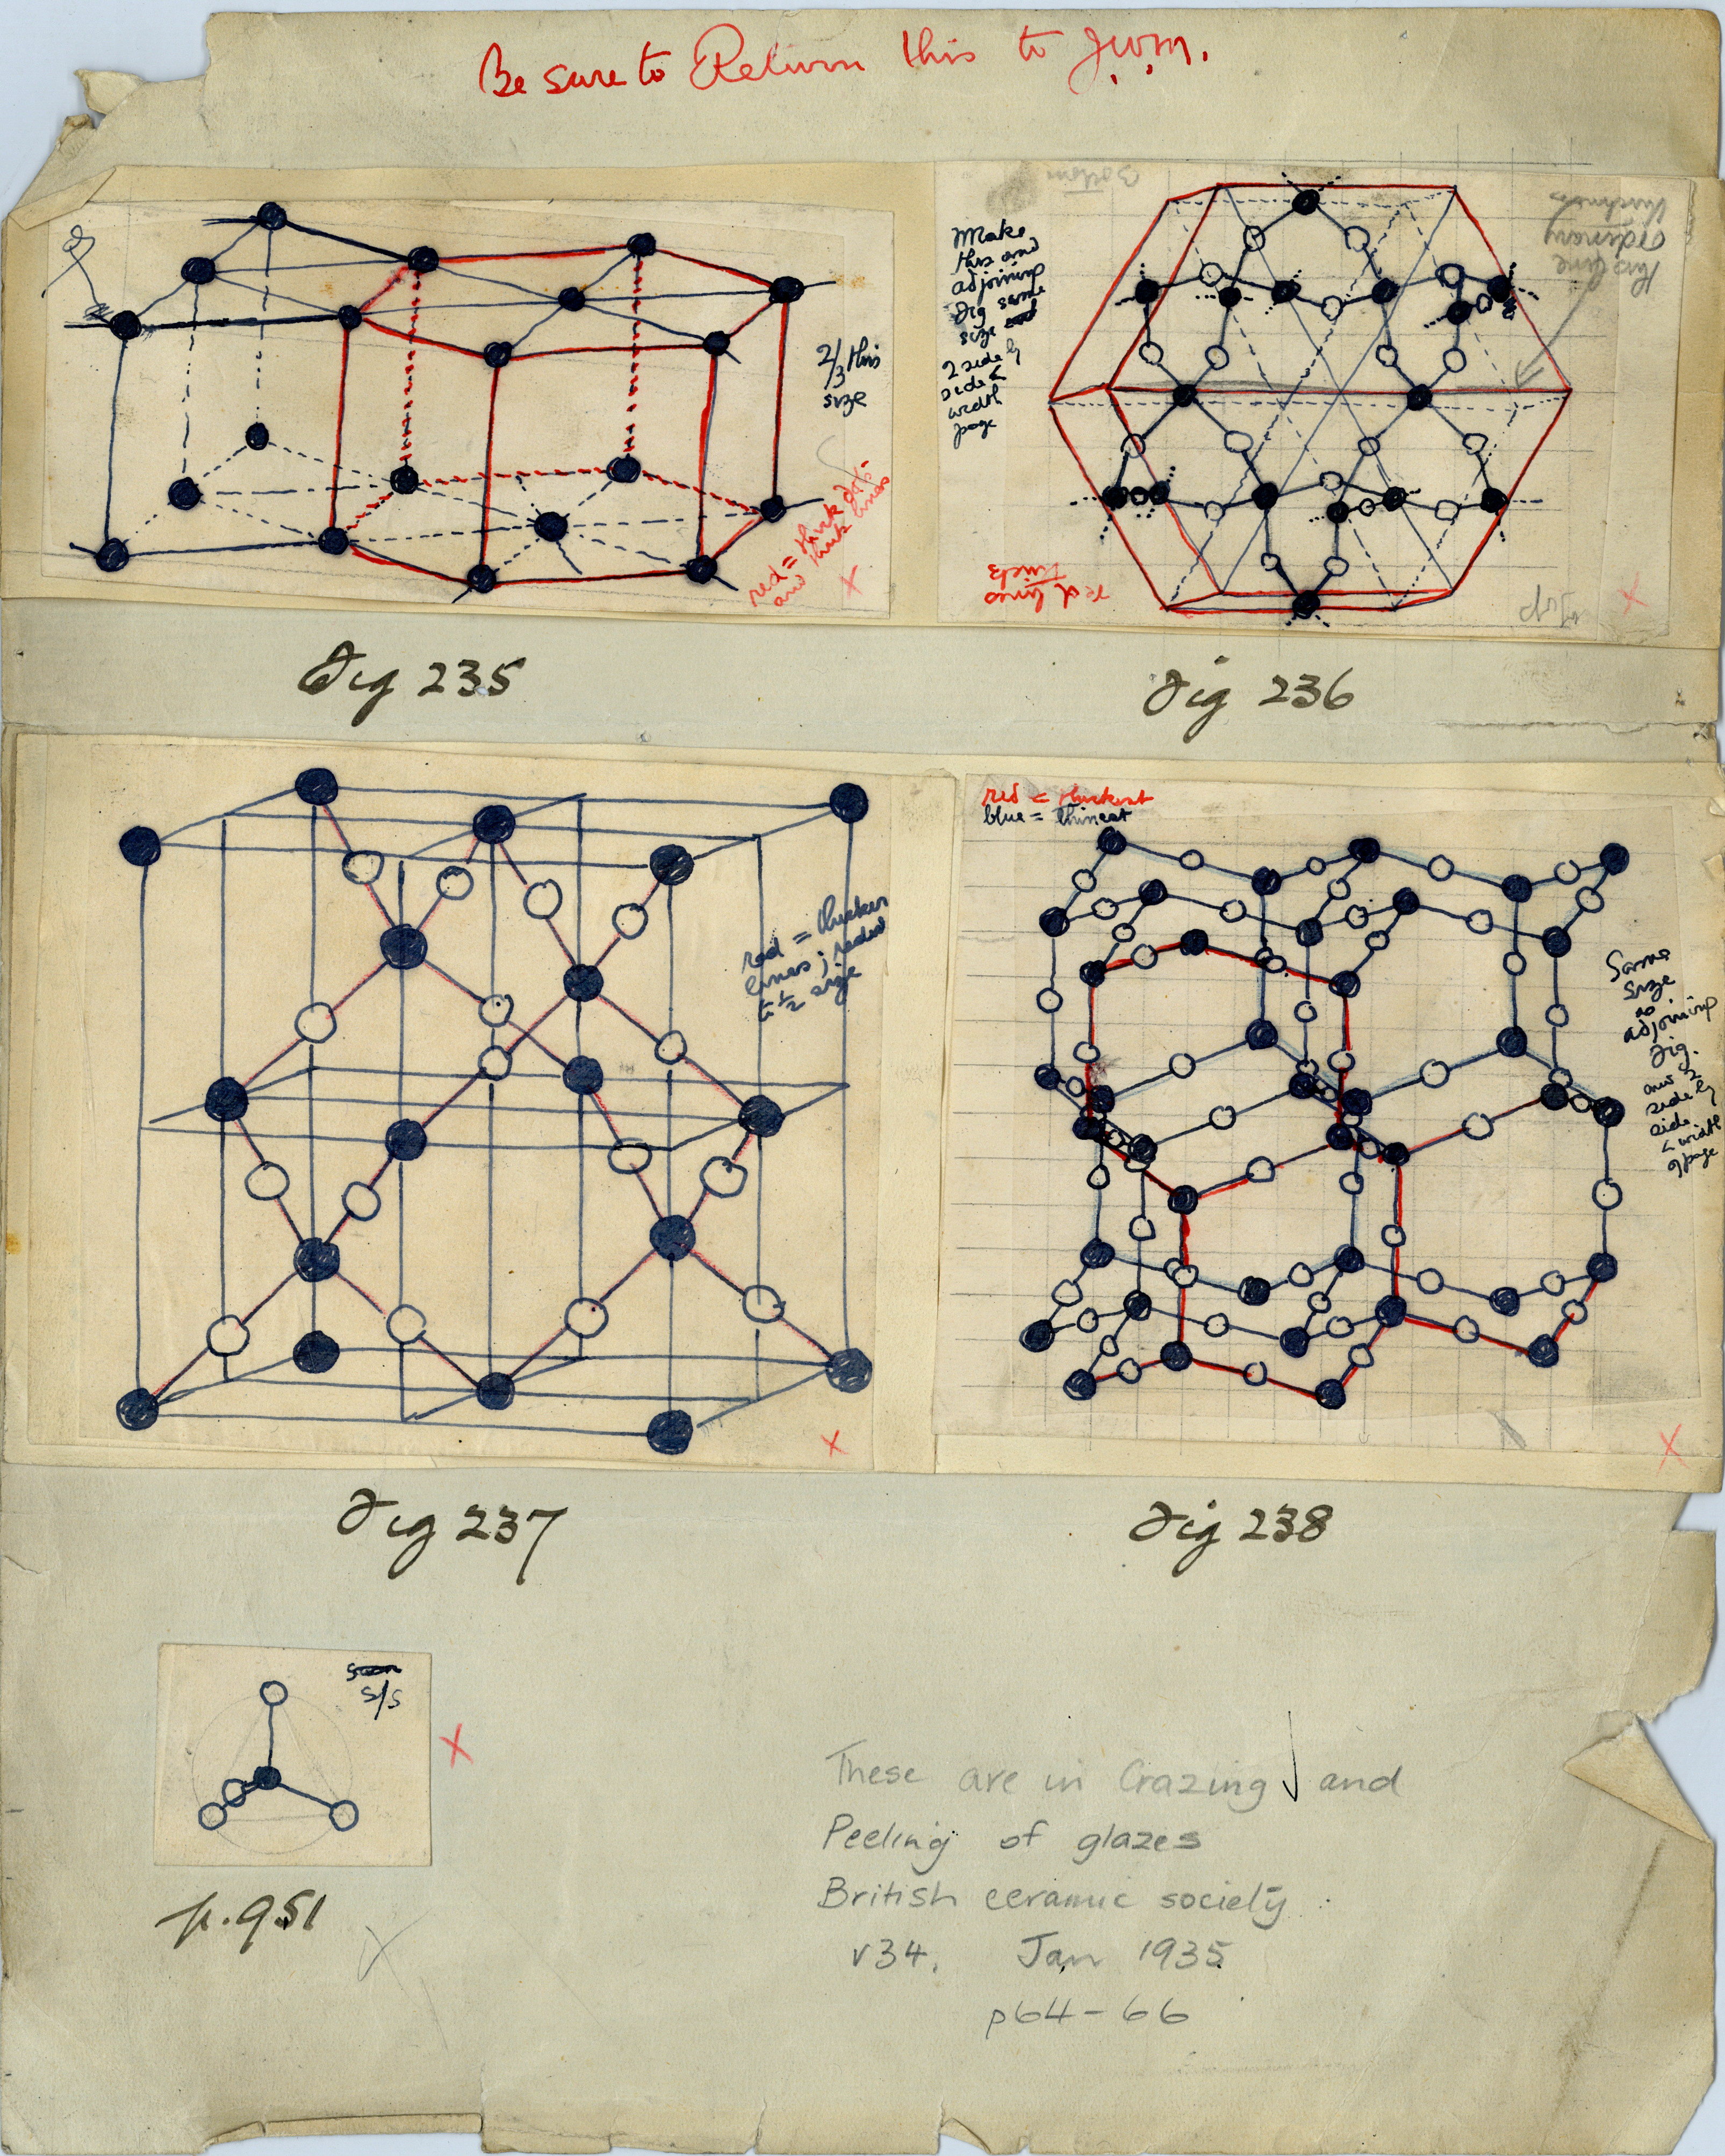 Be sure to Return this to J.W.M.
2/3 this
size
red = thick dots
and thick lines
X
Fig 235
Make
this and
adjoining
Fig same
size
2 side by
side <
width
page
Bottom
this line
ordinary
thickness
red lines
thick
Top
X
Fig 236
red = thicker
lines; reduce
to 1/2 size
X
Fig 237
red = thickest
blue = thinest
Same
size
as
adjoining
Fig.
and 2
side by
side
< width
of page
X
Fig 238
s/s
X
p. 951
These are in Crazing and
Peeling of glazes
British ceramic society
v34. Jan 1935
p64-66